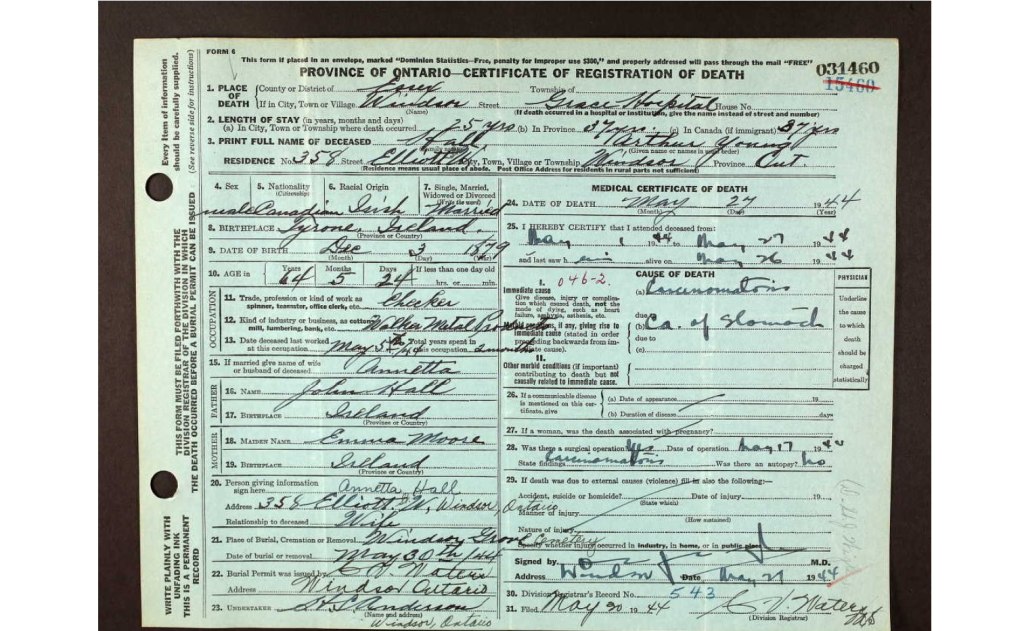 FORM 6
This form if placed in an envelope, marked "Dominion Statistics—Free, penalty for improper use $300," and properly addressed will pass through the mail "FREE"
PROVINCE OF ONTARIO—CERTIFICATE OF REGISTRATION OF DEATH
031460
15460
1. PLACE OF DEATH
County or District of Essex Township of
If in City, Town or Village Windsor Street Grace Hospital House No.
(Name) (If death occurred in a hospital or institution, give the name instead of street and number)
2. LENGTH OF STAY (in years, months and days)
(a) In City, Town or Township where death occurred 25 yrs (b) In Province 37 yrs. (c) In Canada (if immigrant) 37 yrs
3. PRINT FULL NAME OF DECEASED Hall Arthur Young
(Given name or names in order)
RESIDENCE No. 358 Street Elliott W. City, Town, Village or Township Windsor Province Ont.
(Residence means usual place of abode. Post Office Address for residents in rural parts not sufficient)
4. Sex 5. Nationality (Citizenship) 6. Racial Origin 7. Single, Married, Widowed or Divorced (Write the word)
male Canadian Irish Married
8. BIRTHPLACE Tyrone, Ireland.
(Province or Country)
9. DATE OF BIRTH Dec 3 1879
(Month) (Day) (Year)
10. AGE in Years Months Days If less than one day old
64 5 24 hrs. or min.
OCCUPATION
11. Trade, profession or kind of work as spinner, teamster, office clerk, etc. Checker
12. Kind of industry or business, as cotton mill, lumbering, bank, etc. Walker Metal Products
13. Date deceased last worked at this occupation May 5th/44 14. Total years spent in this occupation 2 months
15. If married give name of wife or husband of deceased Annetta
FATHER
16. NAME John Hall
17. BIRTHPLACE Ireland
(Province or Country)
MOTHER
18. MAIDEN NAME Emma Moore
19. BIRTHPLACE Ireland
(Province or Country)
20. Person giving information sign here Annetta Hall
Address 358 Elliott W, Windsor, Ontario
Relationship to deceased Wife
21. Place of Burial, Cremation or Removal Windsor Grove Cemetery
Date of burial or removal May 30th/44
22. Burial Permit was issued by C V Waters
Address Windsor Ontario
23. UNDERTAKER Anderson
(Name and address)
Windsor, Ontario
MEDICAL CERTIFICATE OF DEATH
24. DATE OF DEATH May 27 1944
(Month) (Day) (Year)
25. I HEREBY CERTIFY that I attended deceased from:
May 1 1944 to May 27 1944
and last saw him alive on May 26 1944
CAUSE OF DEATH
PHYSICIAN
Underline the cause to which death should be charged statistically
I. 046-2.
Immediate cause
Give disease, injury or complication which caused death, not the mode of dying, such as heart failure, asphyxia, asthenia, etc.
(a) Carcinomatosis
due to
Morbid conditions, if any, giving rise to immediate cause (stated in order proceeding backwards from immediate cause).
(b) Ca. of Stomach
due to
(c)
II.
Other morbid conditions (if important) contributing to death but not causally related to immediate cause.
26. If a communicable disease is mentioned on this certificate, give
(a) Date of appearance 19
(b) Duration of disease days
27. If a woman, was the death associated with pregnancy?
28. Was there a surgical operation? Yes Date of operation May 17 1944
State findings Carcinomatosis Was there an autopsy? No
29. If death was due to external causes (violence) fill in also the following:—
Accident, suicide or homicide? Date of injury 19
(State which)
Manner of injury
(How sustained)
Nature of injury
Specify whether injury occurred in industry, in home, or in public place
Signed by M.D.
Address Windsor Date May 29 1944
30. Division Registrar's Record No. 543
31. Filed May 30 1944 C V Waters
(Division Registrar)
Every item of information should be carefully supplied.
(See reverse side for instructions)
THIS FORM MUST BE FILED FORTHWITH WITH THE DIVISION REGISTRAR OF THE DIVISION IN WHICH THE DEATH OCCURRED BEFORE A BURIAL PERMIT CAN BE ISSUED
WRITE PLAINLY WITH UNFADING INK
THIS IS A PERMANENT RECORD